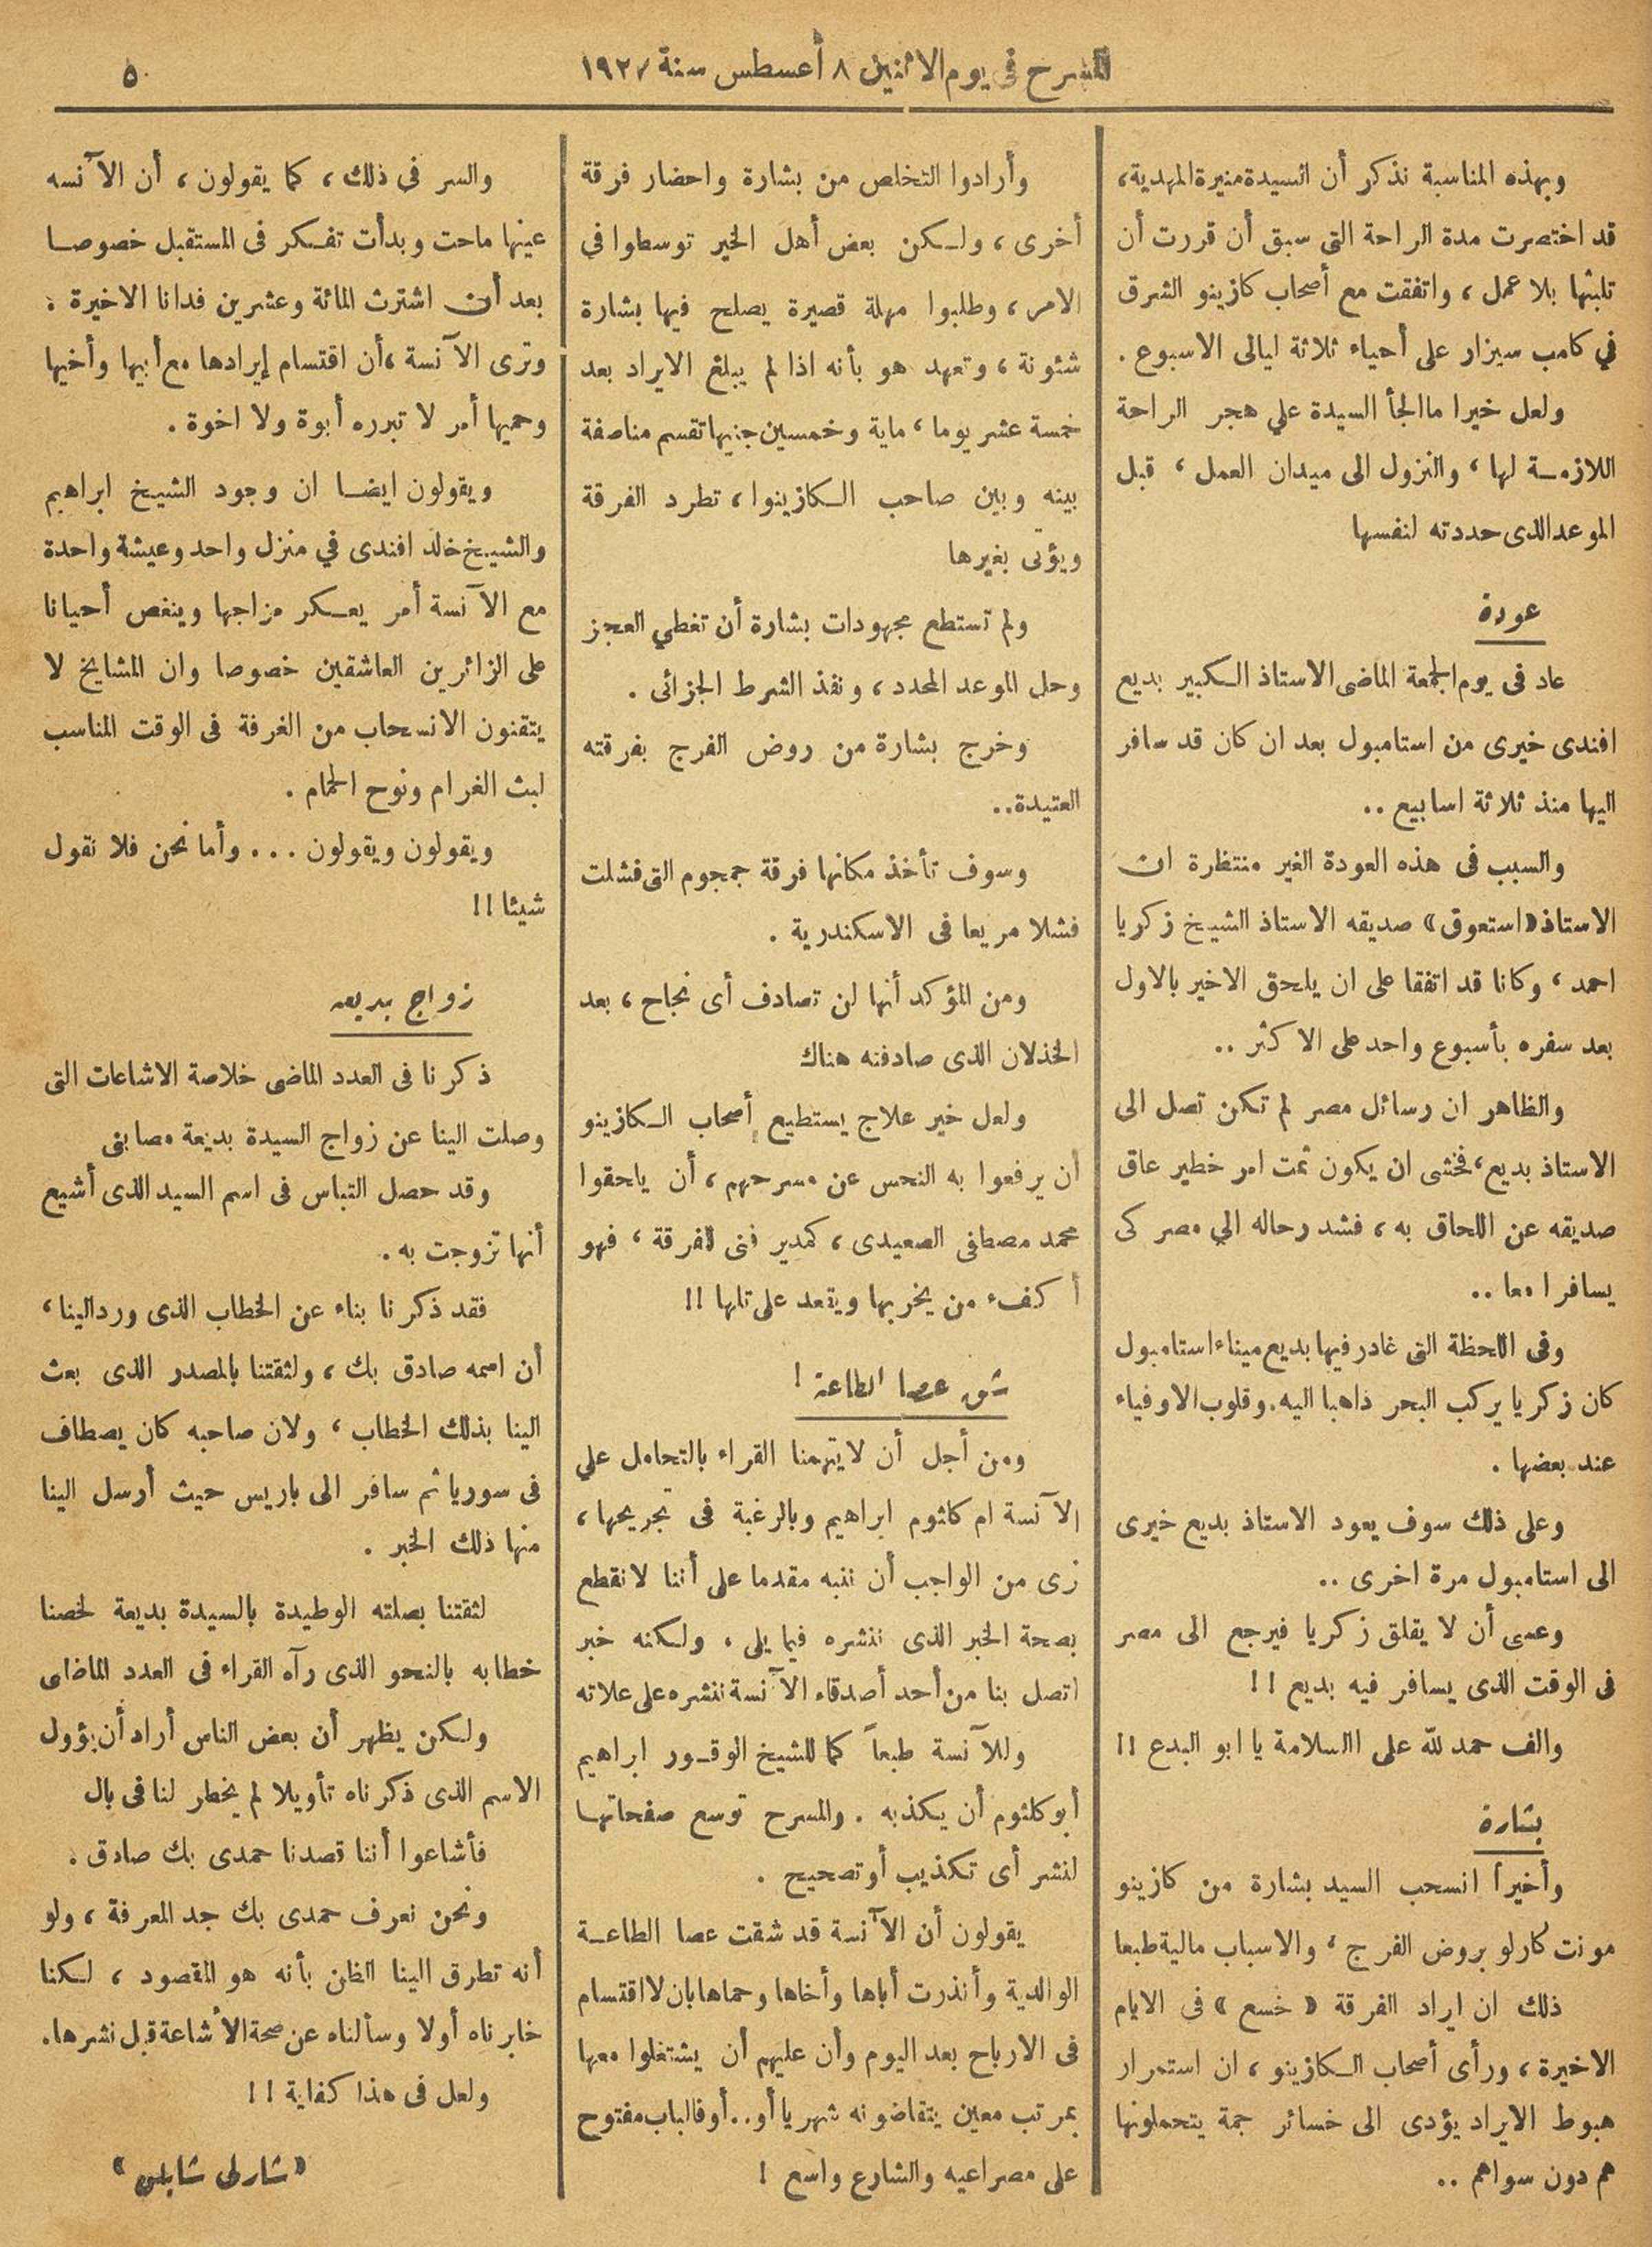 المسرح في يوم الاثنين ٨ أغسطس سنة ١٩٢٧
٥
وبهذه المناسبة نذكر أن السيدة منيرة المهدية،
قد اختصرت مدة الراحة التى سبق أن قررت أن
تلبثها بلا عمل ، واتفقت مع أصحاب كازينو الشرق
في كامب سيزار على أحياء ثلاثة ليالى الاسبوع .
ولعل خيرا ما الجأ السيدة علي هجر الراحة
اللازمة لها ، والنزول الى ميدان العمل ، قبل
الموعد الذى حددته لنفسها
عودة
عاد فى يوم الجمعة الماضى الاستاذ الكبير بديع
افندى خيرى من استامبول بعد ان كان قد سافر
اليها منذ ثلاثة اسابيع ..
والسبب فى هذه العودة الغير منتظرة ان
الاستاذ «استعوق» صديقه الاستاذ الشيخ زكريا
احمد ، وكانا قد اتفقا على ان يلحق الاخير بالاول
بعد سفره بأسبوع واحد على الاكثر ..
والظاهر ان رسائل مصر لم تكن تصل الى
الاستاذ بديع ، فخشى ان يكون ثمت امر خطير عاق
صديقه عن اللحاق به ، فشد رحاله الي مصر كى
يسافرا معا ..
وفى اللحظة التى غادر فيها بديع ميناء استامبول
كان زكريا يركب البحر ذاهبا اليه. وقلوب الاوفياء
عند بعضها .
وعلى ذلك سوف يعود الاستاذ بديع خيرى
الى استامبول مرة اخرى ..
وعسى أن لا يقلق زكريا فيرجع الى مصر
فى الوقت الذى يسافر فيه بديع !!
والف حمد لله على االسلامة يا ابو البدع !!
بشارة
وأخيراً انسحب السيد بشارة من كازينو
مونت كارلو بروض الفرج ، والاسباب مالية طبعا
ذلك ان ايراد الفرقة « خسع » فى الايام
الاخيرة ، ورأى أصحاب الكازينو ، ان استمرار
هبوط الايراد يؤدى الى خسائر جمة يتحملونها
هم دون سواهم ..
وأرادوا التخلص من بشارة واحضار فرقة
أخرى ، ولكن بعض أهل الخير توسطوا في
الامر ، وطلبوا مهلة قصيرة يصلح فيها بشارة
شئونة ، وتعهد هو بأنه اذا لم يبلغ الايراد بعد
خمسة عشر يوما ، ماية وخمسين جنيها تقسم مناصفة
بينه وبين صاحب الكازينوا ، تطرد الفرقة
ويؤتى بغيرها
ولم تستطع مجهودات بشارة أن تغطي العجز
وحل الموعد المحدد ، ونفذ الشرط الجزائى .
وخرج بشارة من روض الفرج بفرقته
العتيدة..
وسوف تأخذ مكانها فرقة جمجوم التى فشلت
فشلا مريعا فى الاسكندرية .
ومن المؤكد أنها لن تصادف أى نجاح ، بعد
الخذلان الذى صادفنه هناك
ولعل خير علاج يستطيع أصحاب الكازينو
أن يرفعوا به النحس عن مسرحهم ، أن ياحقوا
محمد مصطفى الصعيدى ، كمدير فنى للفرقة ، فهو
أكفء من يخربها ويقعد على تلها !!
شق عصا الطاعة !
ومن أجل أن لا يتهمنا القراء بالتحامل علي
الآنسة ام كلثوم ابراهيم وبالرغبة فى تجريحها ،
نرى من الواجب أن ننبه مقدما على أننا لا نقطع
بصحة الخبر الذى ننشره فيما يلى ، ولكنه خبر
اتصل بنا من أحد أصدقاء الآنسة ننشره على علاته
وللآنسة طبعاً كما للشيخ الوقور ابراهيم
أبو كلثوم أن يكذبه . والمسرح توسع صفحاتها
لنشر أى تكذيب أو تصحيح .
يقولون أن الآنسة قد شقت عصا الطاعة
الوالدية وأنذرت أباها وأخاها وحماها بان لا اقتسام
فى الارباح بعد اليوم وأن عليهم أن يشتغلوا معها
بمرتب معين يتقاضونه شهريا أو.. أو فالباب مفتوح
على مصراعيه والشارع واسع !
والسر في ذلك ، كما يقولون ، أن الآنسه
عينها ماحت وبدأت تفكر فى المستقبل خصوصا
بعد أن اشترت المائة وعشرين فدانا الاخيرة .
وترى الآنسة ، أن اقتسام إيرادها مع أبيها وأخيها
وحميها أمر لا تبرره أبوة ولا اخوة .
ويقولون ايضا ان وجود الشيخ ابراهيم
والشيخ خالد افندى في منزل واحد وعيشة واحدة
مع الآنسة أمر يعكر مزاجها وينغص أحيانا
على الزائرين العاشقين خصوصا وان المشايخ لا
يتقنون الانسحاب من الغرفة فى الوقت المناسب
لبث الغرام ونوح الحمام .
ويقولون ويقولون . . . وأما نحن فلا نقول
شيئا !!
زواج بديعه
ذكرنا فى العدد الماضى خلاصة الاشاعات التى
وصلت الينا عن زواج السيدة بديعة مصابنى
وقد حصل التباس فى اسم السيد الذى أشيع
أنها تزوجت به .
فقد ذكرنا بناء عن الخطاب الذى ورد الينا ،
أن اسمه صادق بك ، ولثقتنا بالمصدر الذى بعث
الينا بذلك الخطاب ، ولان صاحبه كان يصطاف
فى سوريا ثم سافر الى باريس حيث أرسل الينا
منها ذلك الخبر .
لثقتنا بصلته الوطيدة بالسيدة بديعة لخصنا
خطابه بالنحو الذى رآه القراء فى العدد الماضاى
ولكن يظهر أن بعض الناس أراد أن يؤول
الاسم الذى ذكرناه تأويلا لم يخطر لنا فى بال
فأشاعوا أننا قصدنا حمدى بك صادق .
ونحن نعرف حمدى بك جد المعرفة ، ولو
أنه تطرق الينا الظن بأنه هو المقصود ، لكنا
خابرناه أولا وسألناه عن صحة الأشاعة قبل نشرها.
ولعل فى هذا كفاية !!
«شارلى شابلن»